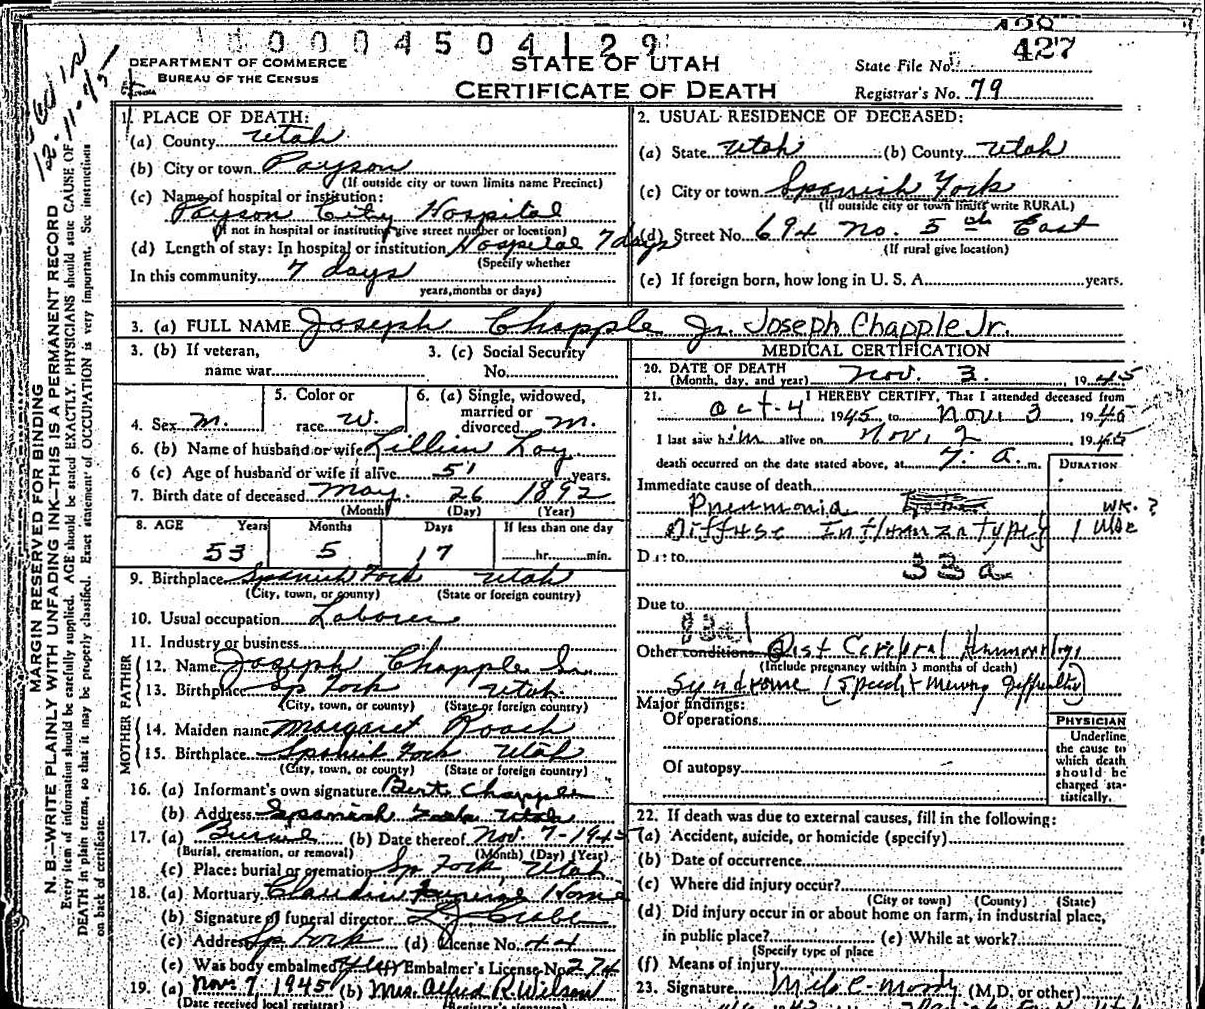 428
0 0 0 0 4 5 0 4 1 2 9
427
DEPARTMENT OF COMMERCE
BUREAU OF THE CENSUS
STATE OF UTAH
CERTIFICATE OF DEATH
State File No.
Registrar's No. 79
MARGIN RESERVED FOR BINDING
N. B.—WRITE PLAINLY WITH UNFADING INK—THIS IS A PERMANENT RECORD
Every item of information should be carefully supplied. AGE should be stated EXACTLY. PHYSICIANS should state CAUSE OF
DEATH in plain terms, so that it may be properly classified. Exact statement of OCCUPATION is very important. See instructions
on back of certificate.
1. PLACE OF DEATH:
(a) County Utah
(b) City or town Payson
(If outside city or town limits name Precinct)
(c) Name of hospital or institution:
Payson City Hospital
(If not in hospital or institution give street number or location)
(d) Length of stay: In hospital or institution Hospital 7 days
(Specify whether
In this community 7 days
years, months or days)
2. USUAL RESIDENCE OF DECEASED:
(a) State Utah (b) County Utah
(c) City or town Spanish Fork
(If outside city or town limits write RURAL)
(d) Street No. 694 No. 5th East
(If rural give location)
(e) If foreign born, how long in U. S. A. years.
3. (a) FULL NAME Joseph Chapple Jr. Joseph Chapple Jr.
3. (b) If veteran,
name war
3. (c) Social Security
No.
4. Sex M.
5. Color or
race W.
6. (a) Single, widowed,
married or
divorced M.
6. (b) Name of husband or wife Lillian
6 (c) Age of husband or wife if alive 51 years.
7. Birth date of deceased May. 26 1892
(Month) (Day) (Year)
8. AGE Years Months Days If less than one day
53 5 17 hr. min.
9. Birthplace Spanish Fork Utah
(City, town, or county) (State or foreign country)
10. Usual occupation Laborer
11. Industry or business
FATHER
12. Name Joseph Chapple Sr.
13. Birthplace Sp Fork Utah
(City, town, or county) (State or foreign country)
MOTHER
14. Maiden name Margaret Roach
15. Birthplace Spanish Fork Utah
(City, town, or county) (State or foreign country)
16. (a) Informant's own signature Bert Chapple
(b) Address Spanish Fork Utah
17. (a) Burial (b) Date thereof Nov. 7-1945
(Burial, cremation, or removal) (Month) (Day) (Year)
(c) Place: burial or cremation Sp Fork, Utah
18. (a) Mortuary Claudin Funeral Home
(b) Signature of funeral director
(c) Address Sp Fork (d) License No. 44
(e) Was body embalmed yes Embalmer's License No. 274
19. (a) Nov. 7 1945 (b) Mrs. Alfred R. Wilson
(Date received local registrar) (Registrar's signature)
MEDICAL CERTIFICATION
20. DATE OF DEATH
(Month, day, and year) Nov. 3. 1945
21. I HEREBY CERTIFY, That I attended deceased from
Oct. 4 1945 to Nov. 3 1945
I last saw him alive on Nov. 2 1945
death occurred on the date stated above, at 7: a. m.
DURATION
Immediate cause of death
Pneumonia wk. ?
Diffuse Influenza type 1 wk
Due to
33a
Due to
Other conditions Post Cerebral Hemorrhage
(Include pregnancy within 3 months of death)
Syndrome (Speech + Memory Difficulty)
Major findings:
Of operations
Of autopsy
PHYSICIAN
Underline
the cause to
which death
should be
charged sta-
tistically.
22. If death was due to external causes, fill in the following:
(a) Accident, suicide, or homicide (specify)
(b) Date of occurrence
(c) Where did injury occur?
(City or town) (County) (State)
(d) Did injury occur in or about home on farm, in industrial place,
in public place? (e) While at work?
(Specify type of place
(f) Means of injury
23. Signature Milo C. Moody (M.D. or other)